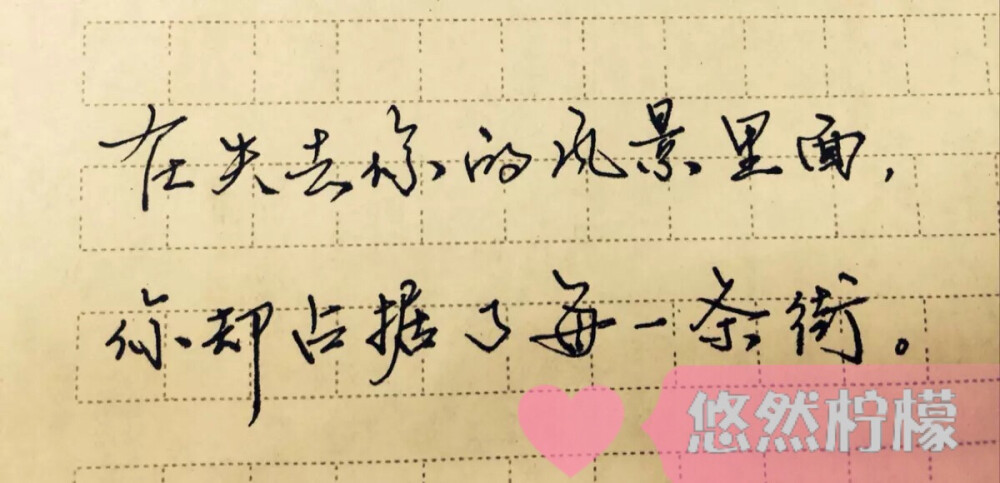 在失去你的风景里面，
你却占据了每一条街。
悠然柠檬